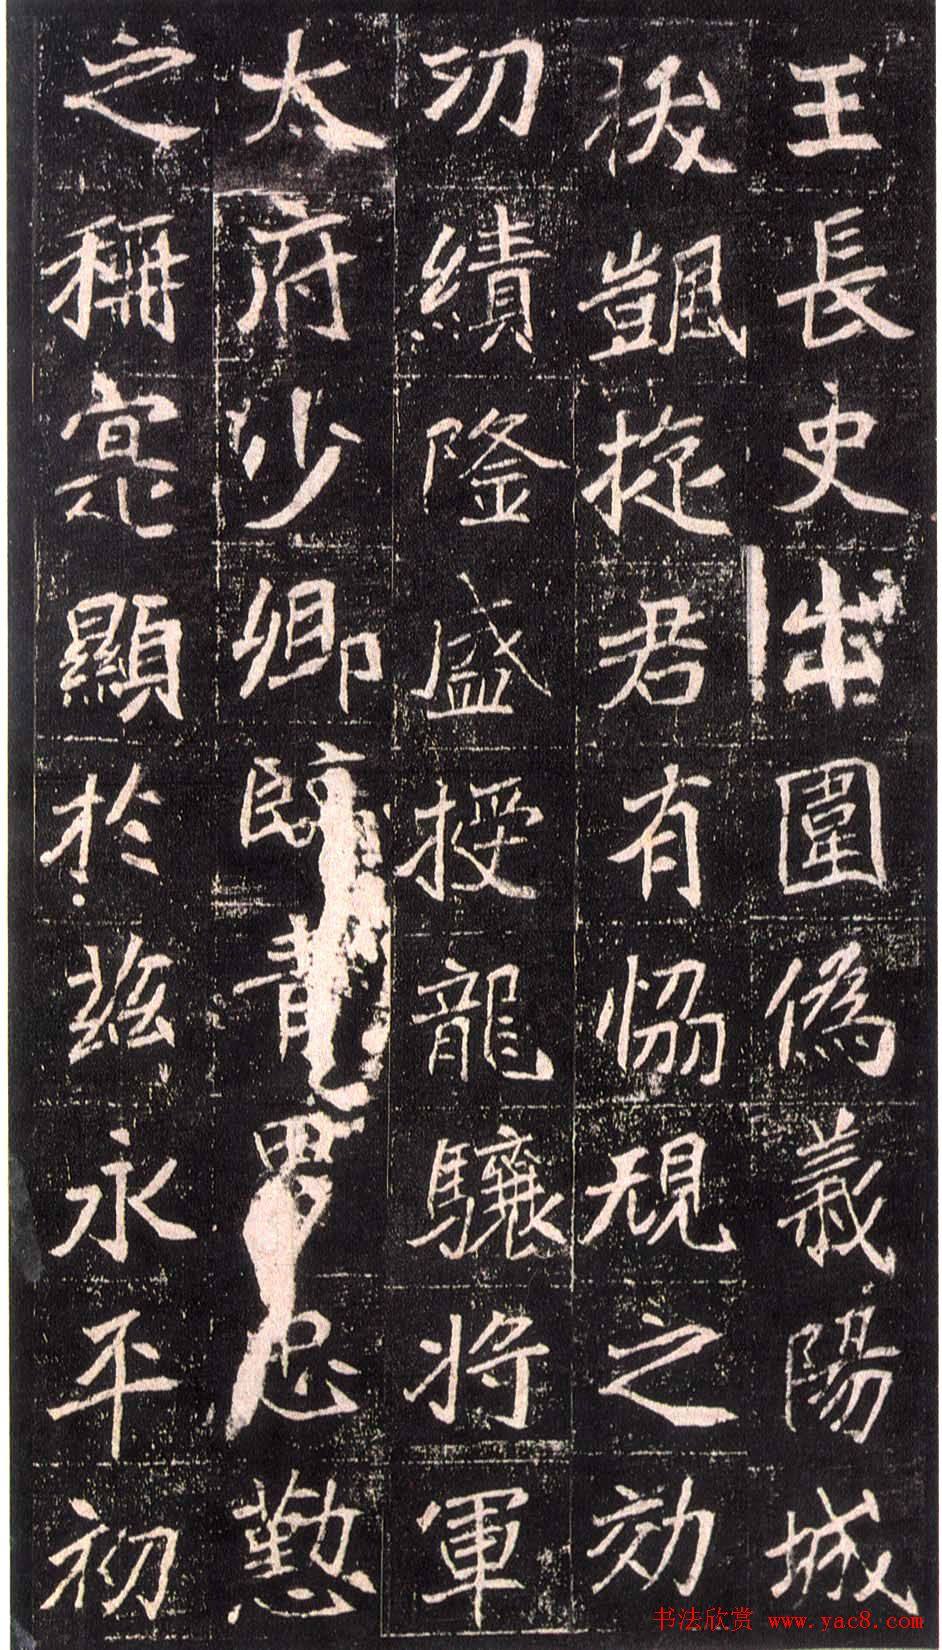 王長史出圍偽義陽城
拔凱旋君有恊規之効
功績隆盛授龍驤将軍
太府少卿臨青男忠懃
之稱寔顯於兹永平初
书法欣赏 www.yac8.com